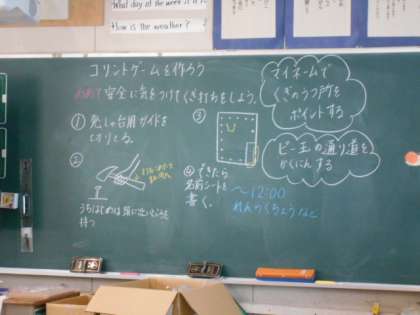 What day of the week is it
How is the weather?
コリントゲームを作ろう
めあて 安全に気をつけてくぎ打ちをしよう。
① 発しゃ台用ガイドを
切りとる。
②
うちはじめは頭に近いところを
持つ
③
④ できたら
名前シートを
書く。
マイネームで
くぎのうつ所を
ポイントする
ビー玉の通り道を
かくにんする
〜12:00